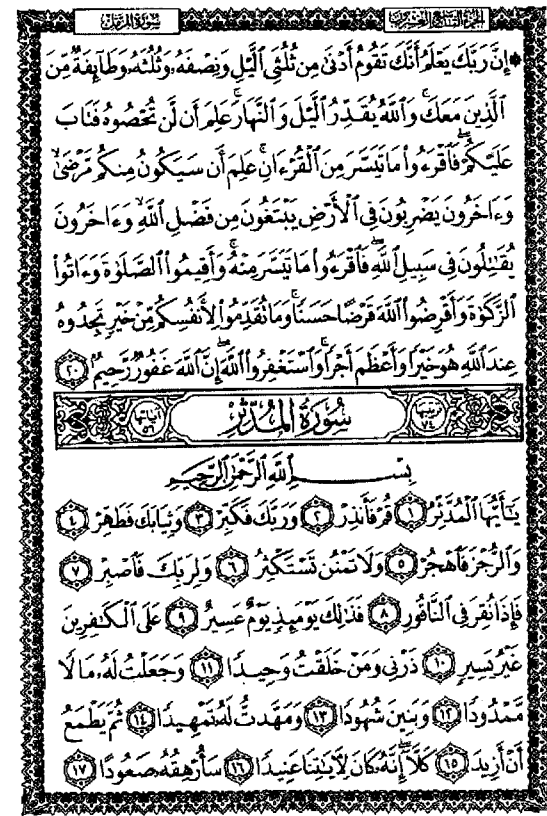 الجزء التاسع والعشرون سورة المزمل
۞ إِنَّ رَبَّكَ يَعْلَمُ أَنَّكَ تَقُومُ أَدْنَىٰ مِن ثُلُثَيِ ٱلَّيْلِ وَنِصْفَهُۥ وَثُلُثَهُۥ وَطَآئِفَةٌ مِّنَ
ٱلَّذِينَ مَعَكَ ۚ وَٱللَّهُ يُقَدِّرُ ٱلَّيْلَ وَٱلنَّهَارَ ۚ عَلِمَ أَن لَّن تُحْصُوهُ فَتَابَ
عَلَيْكُمْ ۖ فَٱقْرَءُوا۟ مَا تَيَسَّرَ مِنَ ٱلْقُرْءَانِ ۚ عَلِمَ أَن سَيَكُونُ مِنكُم مَّرْضَىٰ ۙ
وَءَاخَرُونَ يَضْرِبُونَ فِى ٱلْأَرْضِ يَبْتَغُونَ مِن فَضْلِ ٱللَّهِ ۙ وَءَاخَرُونَ
يُقَٰتِلُونَ فِى سَبِيلِ ٱللَّهِ ۖ فَٱقْرَءُوا۟ مَا تَيَسَّرَ مِنْهُ ۚ وَأَقِيمُوا۟ ٱلصَّلَوٰةَ وَءَاتُوا۟
ٱلزَّكَوٰةَ وَأَقْرِضُوا۟ ٱللَّهَ قَرْضًا حَسَنًا ۚ وَمَا تُقَدِّمُوا۟ لِأَنفُسِكُم مِّنْ خَيْرٍ تَجِدُوهُ
عِندَ ٱللَّهِ هُوَ خَيْرًا وَأَعْظَمَ أَجْرًا ۚ وَٱسْتَغْفِرُوا۟ ٱللَّهَ ۖ إِنَّ ٱللَّهَ غَفُورٌ رَّحِيمٌۢ ٢٠
ترتيبها ٧٤ سُورَةُ المُدَّثِّرِ آياتها ٥٦
بِسْمِ ٱللَّهِ ٱلرَّحْمَٰنِ ٱلرَّحِيمِ
يَٰٓأَيُّهَا ٱلْمُدَّثِّرُ ١ قُمْ فَأَنذِرْ ٢ وَرَبَّكَ فَكَبِّرْ ٣ وَثِيَابَكَ فَطَهِّرْ ٤
وَٱلرُّجْزَ فَٱهْجُرْ ٥ وَلَا تَمْنُن تَسْتَكْثِرُ ٦ وَلِرَبِّكَ فَٱصْبِرْ ٧
فَإِذَا نُقِرَ فِى ٱلنَّاقُورِ ٨ فَذَٰلِكَ يَوْمَئِذٍ يَوْمٌ عَسِيرٌ ٩ عَلَى ٱلْكَٰفِرِينَ
غَيْرُ يَسِيرٍ ١٠ ذَرْنِى وَمَنْ خَلَقْتُ وَحِيدًا ١١ وَجَعَلْتُ لَهُۥ مَالًا
مَّمْدُودًا ١٢ وَبَنِينَ شُهُودًا ١٣ وَمَهَّدتُّ لَهُۥ تَمْهِيدًا ١٤ ثُمَّ يَطْمَعُ
أَنْ أَزِيدَ ١٥ كَلَّآ ۖ إِنَّهُۥ كَانَ لِءَايَٰتِنَا عَنِيدًا ١٦ سَأُرْهِقُهُۥ صَعُودًا ١٧